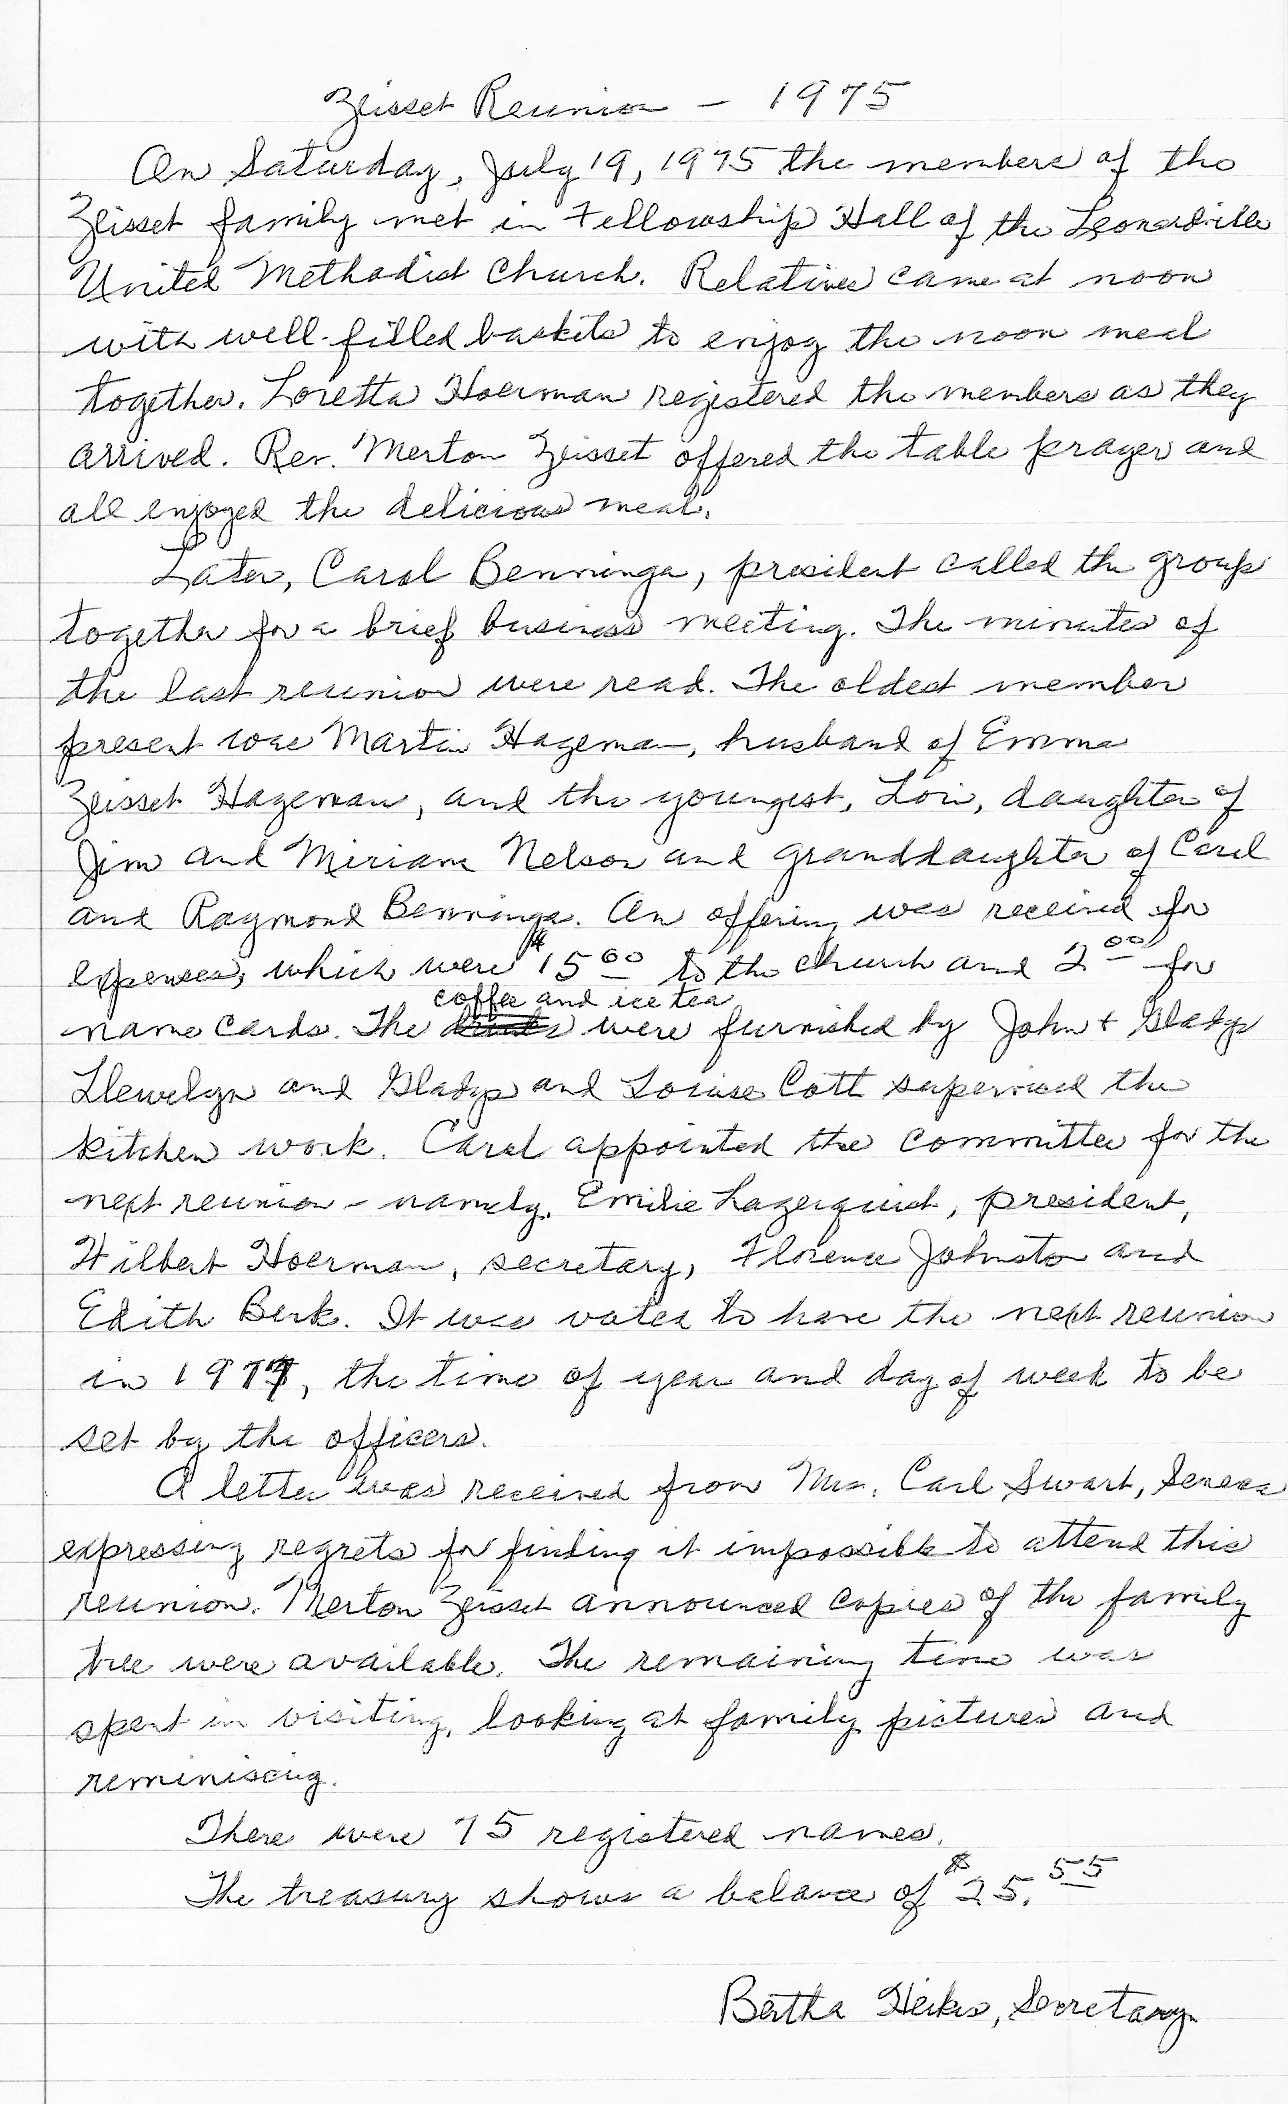 Zeisset Reunion - 1975
On Saturday, July 19, 1975 the members of the
Zeisset family met in Fellowship Hall of the Leonardville
United Methodist Church. Relatives came at noon
with well-filled baskets to enjoy the noon meal
together. Loretta Hoerman registered the members as they
arrived. Rev. Merton Zeisset offered the table prayer and
all enjoyed the delicious meal.
Later, Carol Benninga, president called the group
together for a brief business meeting. The minutes of
the last reunion were read. The oldest member
present was Martin Hageman, husband of Emma
Zeisset Hageman, and the youngest, Lori, daughter of
Jim and Miriam Nelson and granddaughter of Carol
and Raymond Benninga. An offering was received for
expenses, which were $15 00 to the church and 2 00 for
coffee and ice tea
name cards. The drinks were furnished by John + Gladys
Llewelyn and Gladys and Louise Cott supervised the
kitchen work. Carol appointed the committee for the
next reunion - namely, Emilie Lagerquist, president,
Wilbert Hoerman, secretary, Florence Johnston and
Edith Berk. It was voted to have the next reunion
in 1977, the time of year and day of week to be
set by the officers.
A letter was received from Mrs. Carl Swart, Seneca
expressing regrets for finding it impossible to attend this
reunion. Merton Zeisset announced copies of the family
tree were available. The remaining time was
spent in visiting, looking at family pictures and
reminiscing.
There were 75 registered names.
The treasury shows a balance of $25.55
Bertha Heikes, Secretary